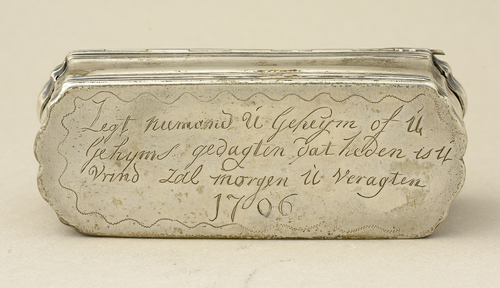 Zegt niemand ú Geheym of ú
Gehyms gedagten dat heden is ú
Vrind Zal morgen ú Veragten
1706